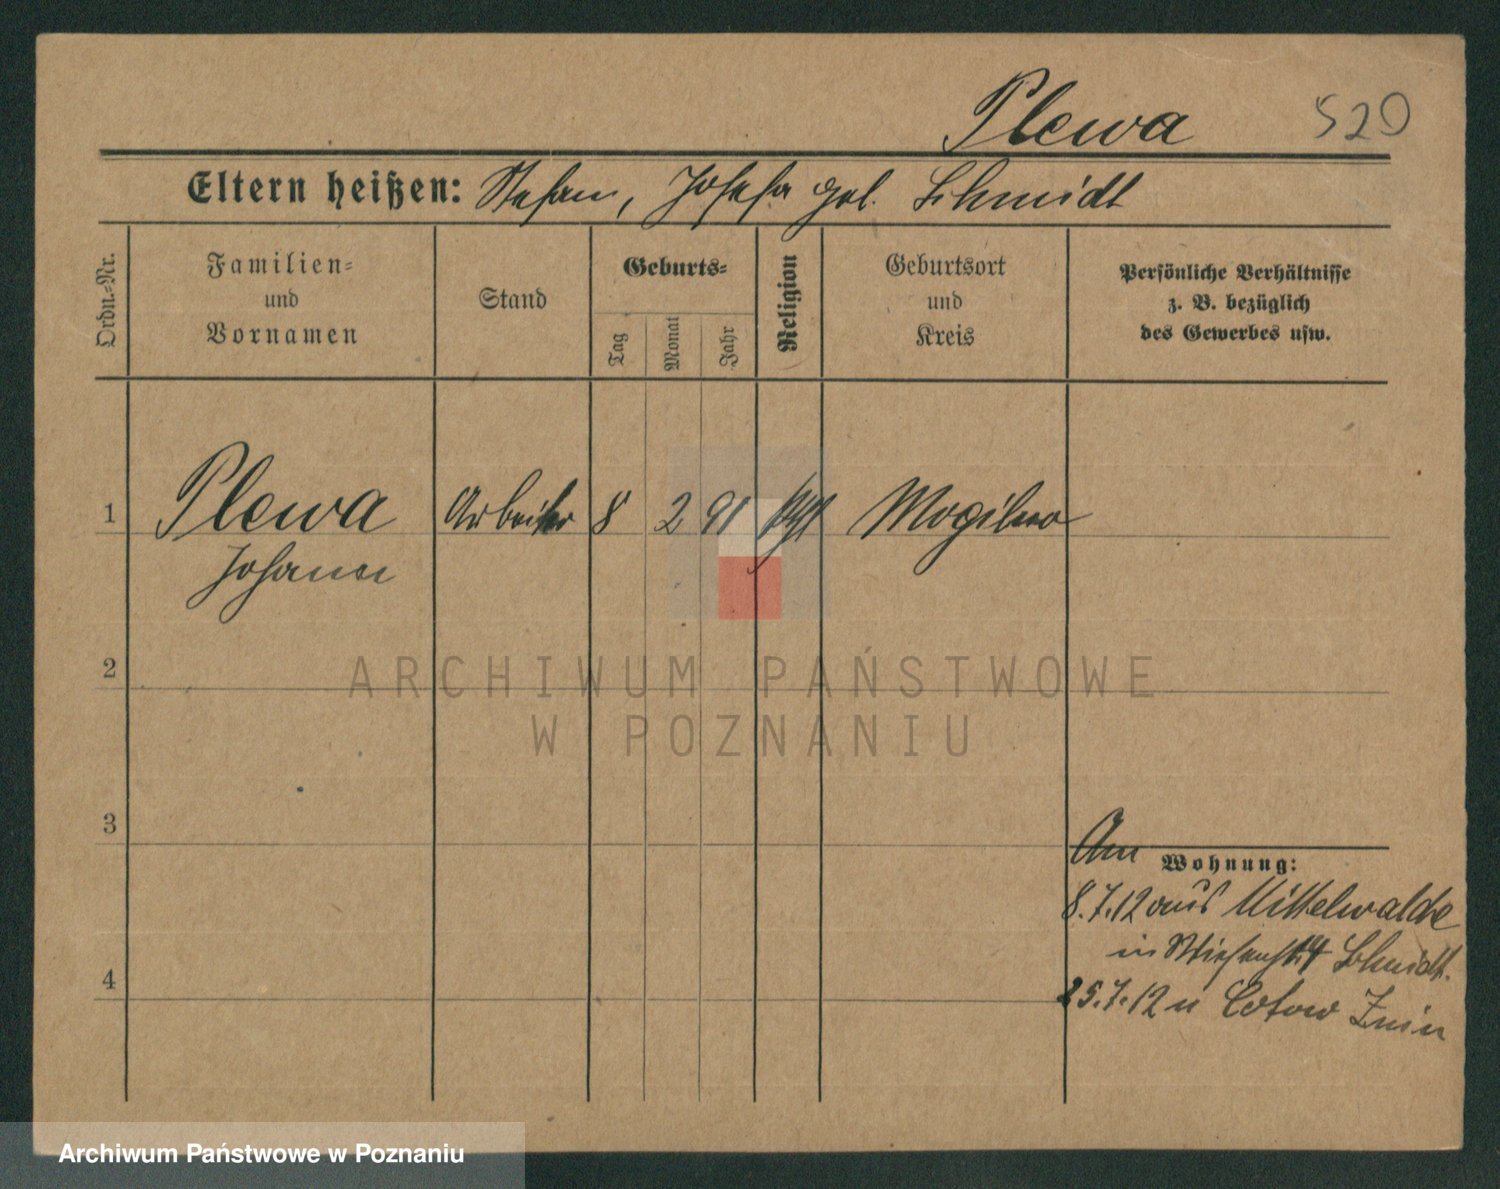 Plewa 520
Eltern heißen: Stefan, Josefa geb. Schmidt
Ordn.-Nr.
Familien-
und
Vornamen
Stand
Geburts-
Tag
Monat
Jahr
Religion
Geburtsort
und
Kreis
Persönliche Verhältnisse
z. B. bezüglich
des Gewerbes usw.
1 Plewa Arbeiter 8 2 91 Mogilno
Johann
2
ARCHIWUM PAŃSTWOWE
W POZNANIU
3
Am Wohnung:
8.7.12 aus Mittelwalde
in Schmidt.
4
25.7.12 n Znin
Archiwum Państwowe w Poznaniu